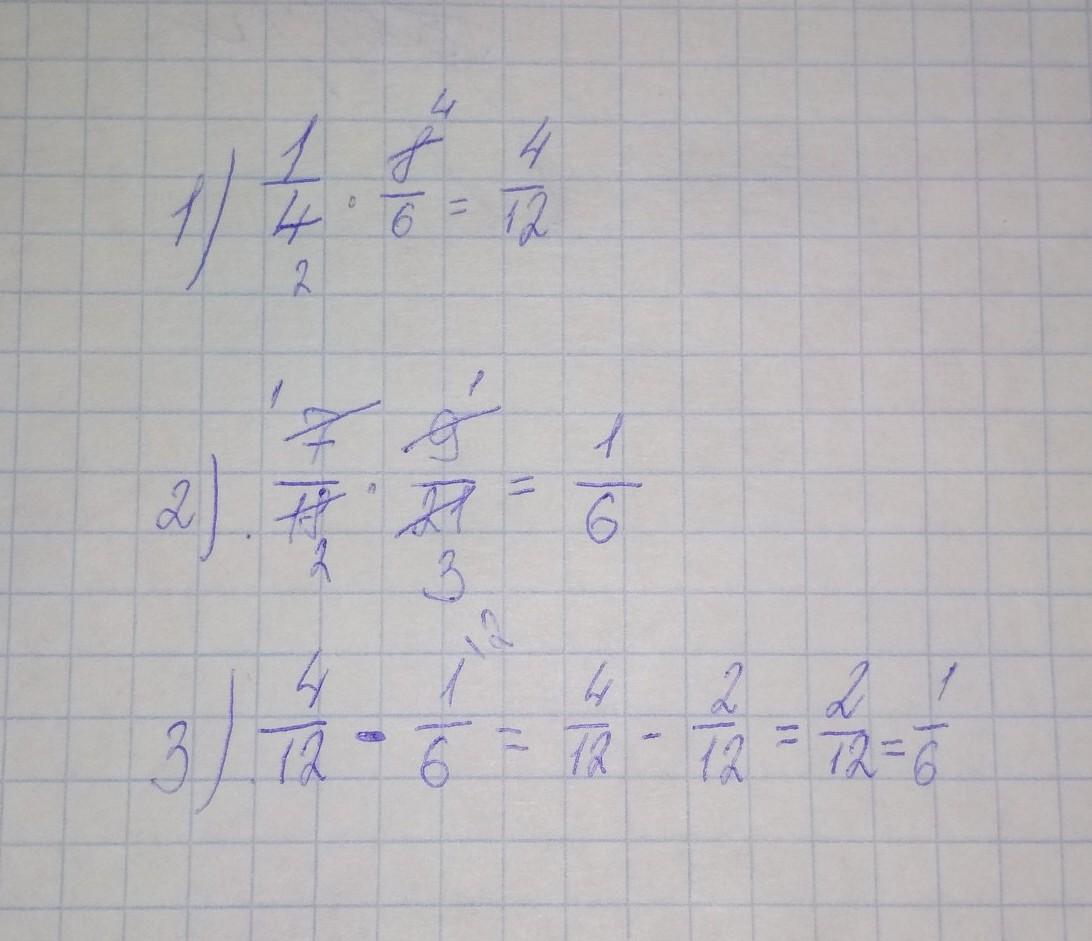 1) 1/4 · 8/6 = 4/12 (4, 2)
2). 7/18 · 9/21 = 1/6 (1, 1, 2, 3)
3). 4/12 - 1/6 \2 = 4/12 - 2/12 = 2/12 = 1/6